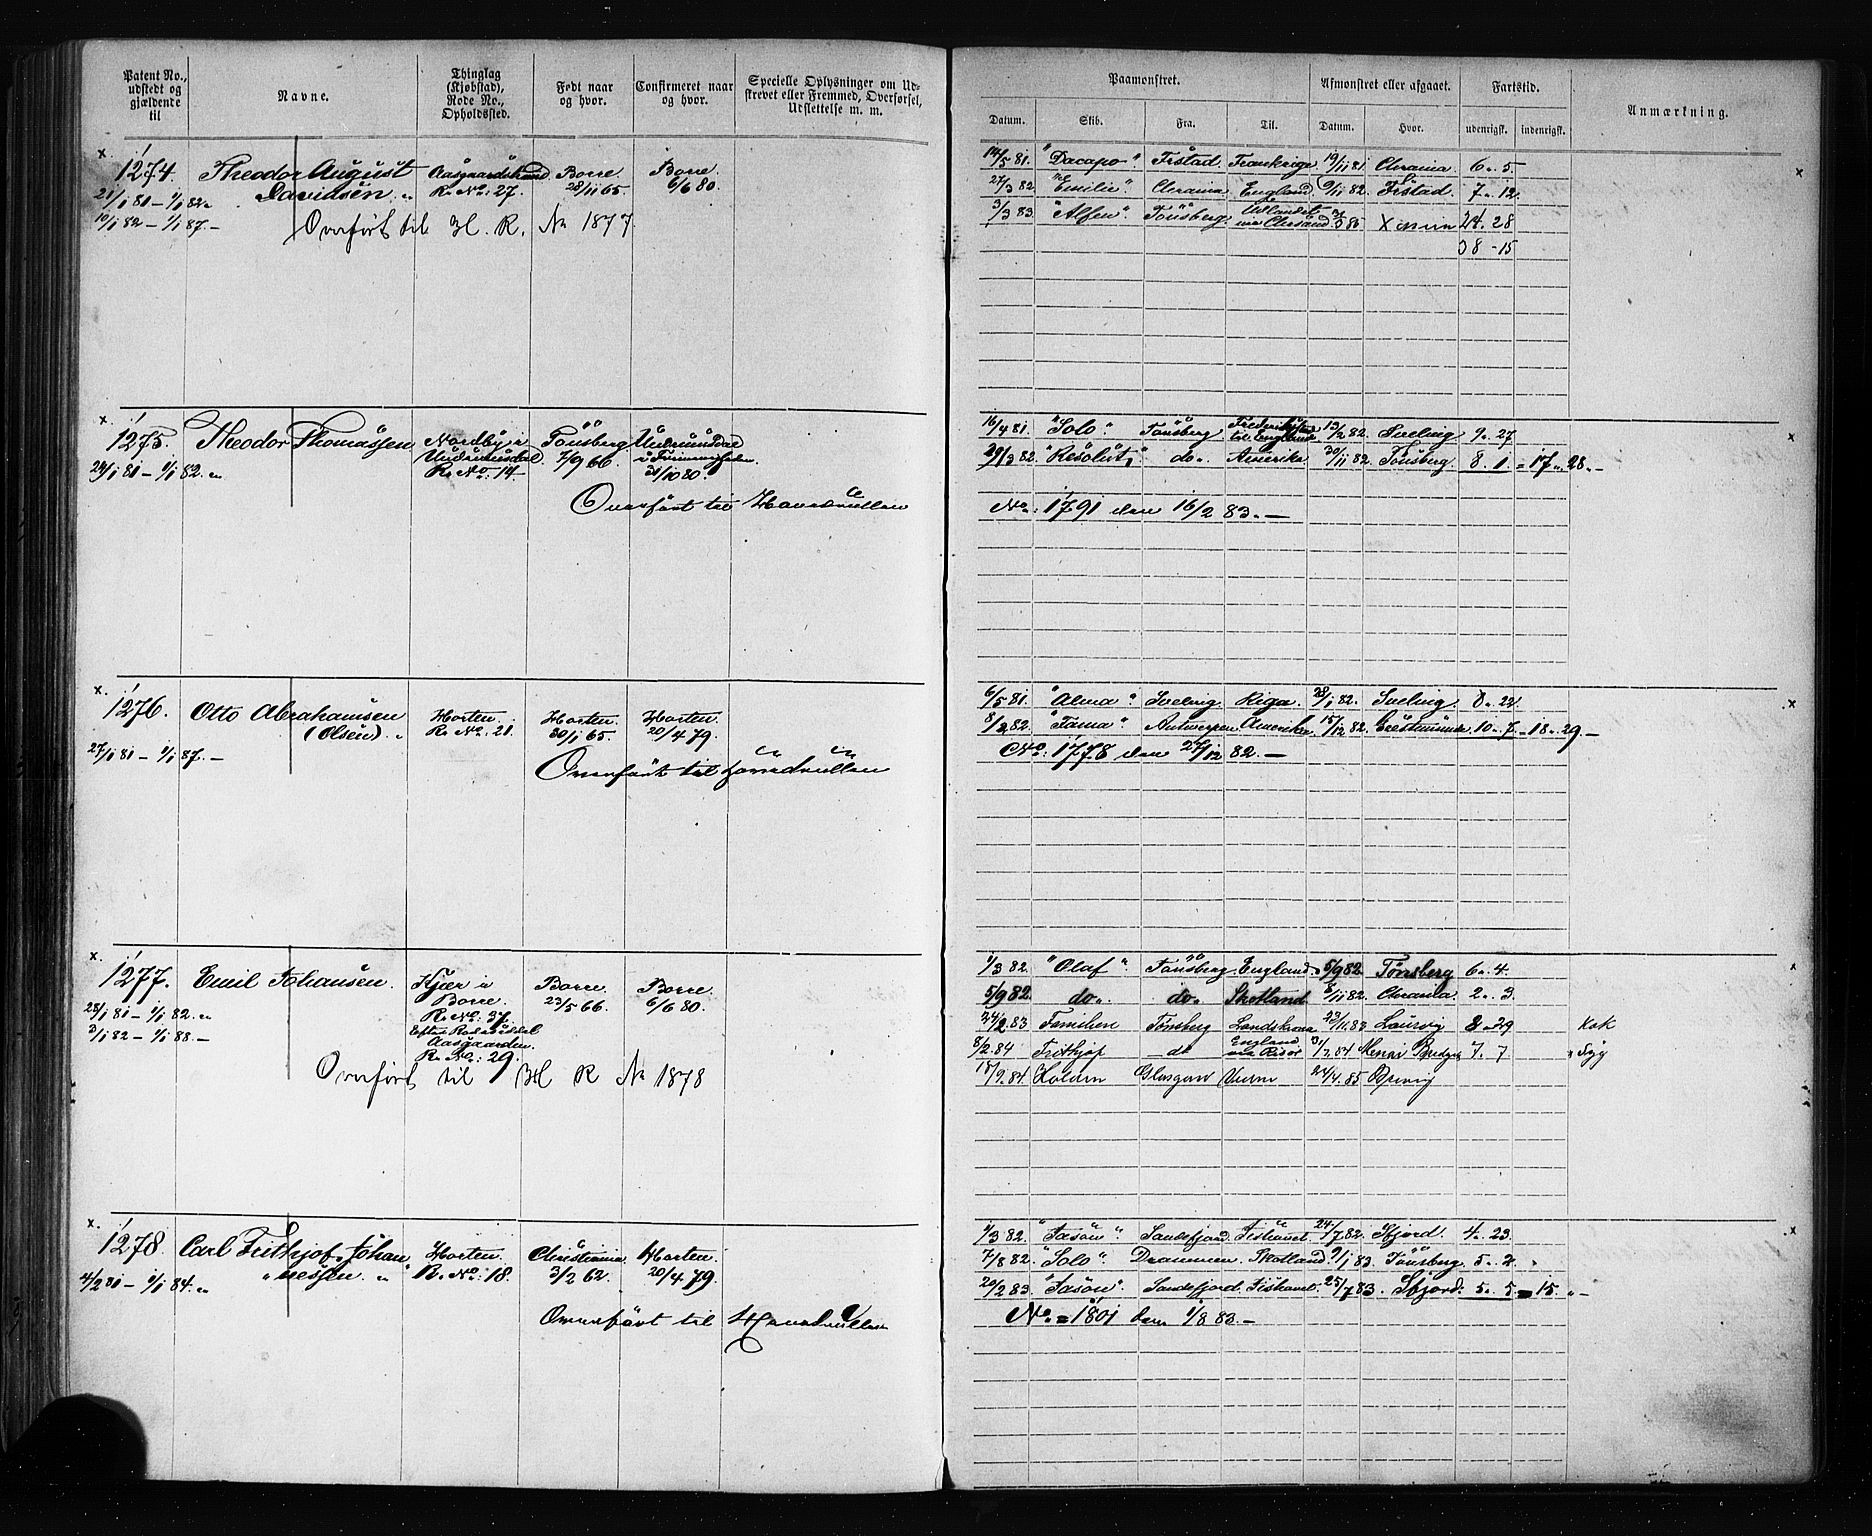 Patent No., udstedt og gjældende til
Navne.
Thinglag (Kjøbstad), Rode No., Opholdssted.
Født naar og hvor.
Confirmeret naar og hvor.
Specielle Oplysninger om Udskrevet eller Fremmed, Overførsel, Udslettelse m. m.
Paamønstret.
Afmønstret eller afgaaet.
Fartstid.
Anmærkning.
Datum. Skib. Fra. Til. Datum. Hvor. udenrigsk. indenrigsk.
x.
1274. Theodor August Aasgaardstrand Borre. Borre.
21/1 81 – 1/1 82 „ Davidsen „ R. No: 27. 28/11 65 6/6 80.
10/1 82 – 1/1 87. – Overført til H. R. No 1877
14/5 81. "Dacapo" Frstad. Frankrige 19/11 81 Chrania 6 „ 5.
27/3 82 "Emilie" Chrania England 9/11 82. Frstad. 7 „ 12.
3/3 83. "Alfen". Tönsberg. Udlandet via Chrsand 24 „ 28
38 – 15
x
x.
1275. Theodor Thomassen Nordby i Tönsberg Undrumsdal
24/1 81 – 1/1 82. „ Undrumsdal. R. No: 14 7/9 66. 31/10 80.
Overført til Hovedrullen
16/4 81. "Solo" Tönsberg til England 13/2 82. Svelvig 9 „ 27
29/3 82. "Resolut" do „ Amerika 20/11 82. Tönsberg. 8 „ 1 = 17 „ 28 „ –
No: 1791 den 16/2 83. –
x
x.
1276. Otto Abrahamsen Horten. Horten. Horten.
(Olsen) „ R. No: 21. 30/1 65. 20/4 79.
27/1 81 – 1/1 87. –
Overført til Hovedrullen
6/5 81. "Alma" Svelvig Riga. 28/1 82. Svelvig 8 „ 22
8/3 82. "Fama" Antwerpen Amerika 15/12 82. 10 „ 7 = 18 „ 29 –
No: 1778 den 27/12 82. –
x
x.
1277. Emil Johansen. Kjær i Borre. Borre.
28/1 81 – 1/1 82. „ Borre. 23/5 66. 6/6 80.
3/1 82 – 1/1 88. – R. No: 37.
Aasgaarden.
R. No: 29.
Overført til H R No 1878
1/3 82. "Olaf" Tönsberg England. 5/9 82. Tønsberg 6 „ 4.
5/9 82. do „ do „ Skotland 8/11 82. Chrania. 2 „ 3.
24/2 83 Familien Tønsberg Landskrona 23/11 83 Laurvig 8 „ 29 Kok
8/2 84 Frithjof – do England via Risör 31/7 84 7 „ 7 „ Syg
18/9 84 Holden Glasgow 24/4 85 Brevig
x
x.
1278. Carl Frithjof Johan Horten. Christiania Horten.
4/2 81 – 1/1 84. „ „ nessen „ R. No: 18. 3/2 62. 20/4 79.
Overført til Hovedrullen
1/3 82. Sandefjord. Fiskanst 24/7 82. Sfjord. 4 „ 23.
7/8 82. "Solo" Drammen. Skotland. 9/1 83. Tönsberg 5 „ 2 „
20/2 83 Sandefjord. Fiskanst. 25/7 83. Sfjord. 5 „ 5 = 15 „ –
No = 1801 den 1/8 83. –
x